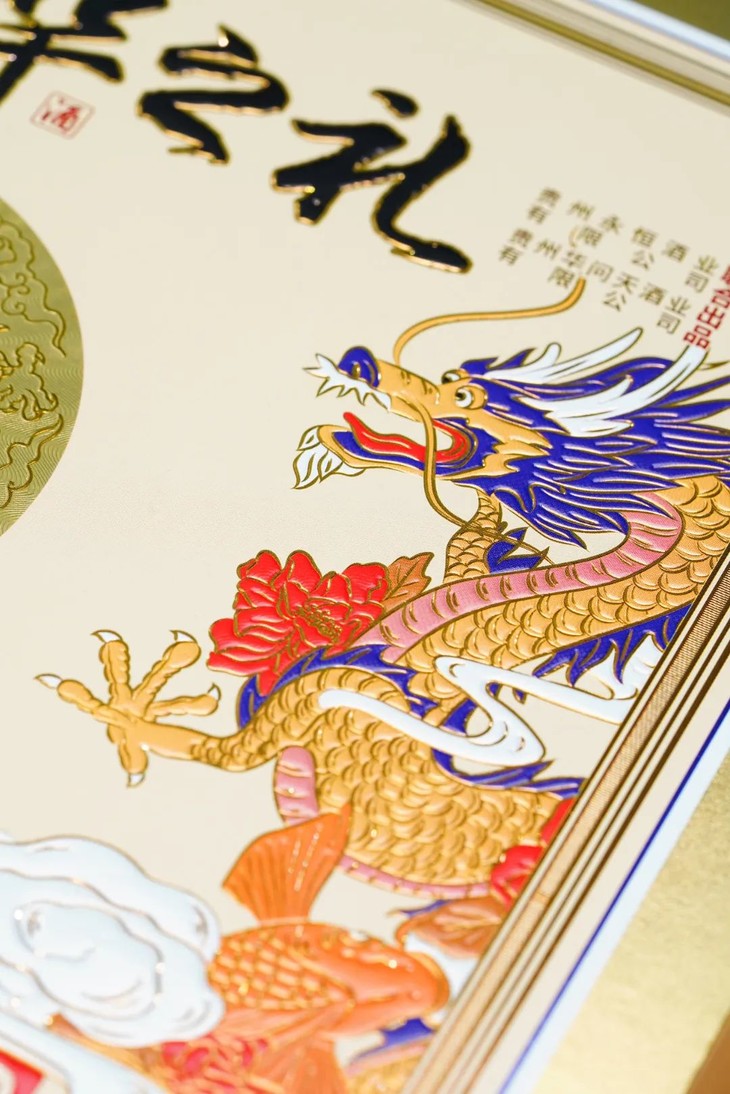 之礼
酒
贵州永恒酒业
有限公司
贵州华问天酒业
有限公司
联合出品